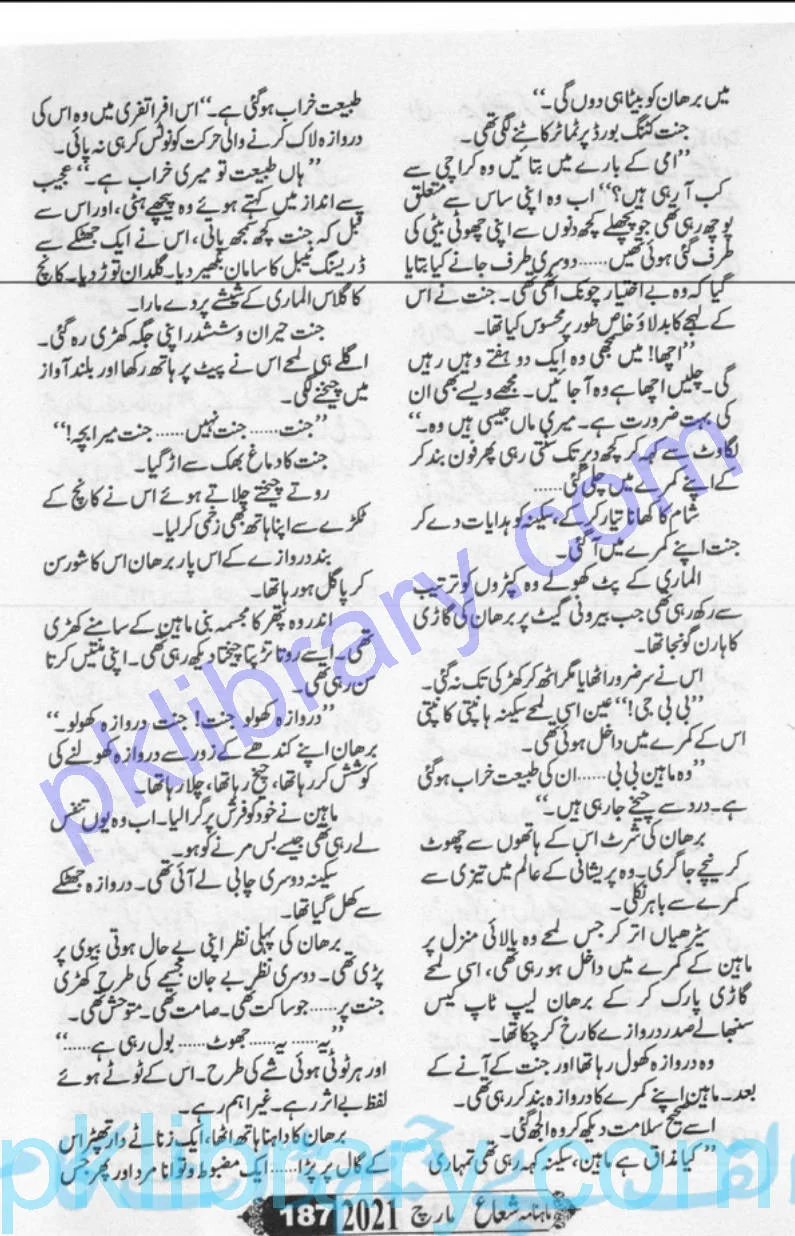 میں برھان کو بتا ہی دوں گی۔“
جنت کٹنگ بورڈ پر ٹماٹر کاٹنے لگی تھی۔
”امی کے بارے میں بتائیں وہ کراچی سے
کب آ رہی ہیں؟“ اب وہ اپنی ساس سے متعلق
پوچھ رہی تھی جو پچھلے کچھ دنوں سے اپنی چھوٹی بیٹی کی
طرف گئی ہوئی تھیں ...... دوسری طرف جانے کیا بتایا
گیا کہ وہ بے اختیار چونک اٹھی تھی۔ جنت نے اس
کے لہجے کا بدلاؤ خاص طور پر محسوس کیا تھا۔
”اچھا! میں سمجھی وہ ایک دو ہفتے وہیں رہیں
گی۔ چلیں اچھا ہے وہ آ جائیں۔ مجھے ویسے بھی ان
کی بہت ضرورت ہے۔ میری ماں جیسی ہیں وہ۔“
لگاوٹ سے کہہ کر کچھ دیر تک سنتی رہی پھر فون بند کر
کے اپنے کمرے میں چلی گئی ......
شام کا کھانا تیار کر کے، سکینہ کو ہدایات دے کر
جنت اپنے کمرے میں آ گئی۔
الماری کے پٹ کھولے وہ کپڑوں کو ترتیب
سے رکھ رہی تھی جب بیرونی گیٹ پر برھان کی گاڑی
کا ہارن گونجا تھا۔
اس نے سر ضرور اٹھایا مگر اٹھ کر کھڑکی تک نہ گئی۔
”بی بی جی!“ عین اسی لمحے سکینہ ہانپتی کانپتی
اس کے کمرے میں داخل ہوئی تھی۔
”وہ ماہین بی بی ...... ان کی طبیعت خراب ہو گئی
ہے۔ درد سے چیخے جا رہی ہیں۔“
برھان کی شرٹ اس کے ہاتھوں سے چھوٹ
کر نیچے جا گری۔ وہ پریشانی کے عالم میں تیزی سے
کمرے سے باہر نکلی۔
سیڑھیاں اتر کر جس لمحے وہ بالائی منزل پر
ماہین کے کمرے میں داخل ہو رہی تھی، اسی لمحے
گاڑی پارک کر کے برھان لیپ ٹاپ کیس
سنبھالے صدر دروازے کا رخ کر چکا تھا۔
وہ دروازہ کھول رہا تھا اور جنت کے آنے کے
بعد۔ ماہین اپنے کمرے کا دروازہ بند کر رہی تھی۔
اسے صحیح سلامت دیکھ کر وہ الجھ گئی۔
”کیا مذاق ہے ماہین، سکینہ کہہ رہی تھی تمہاری
طبیعت خراب ہو گئی ہے۔“ اس افراتفری میں وہ اس کی
دروازہ لاک کرنے والی حرکت کو نوٹس کر ہی نہ پائی۔
”ہاں طبیعت تو میری خراب ہے۔“ عجیب
سے انداز میں کہتے ہوئے وہ پیچھے ہٹی، اور اس سے
قبل کہ جنت کچھ سمجھ پاتی، اس نے ایک جھٹکے سے
ڈریسنگ ٹیبل کا سامان بکھیر دیا۔ گلدان توڑ دیا۔ کانچ
کا گلاس الماری کے شیشے پر دے مارا۔
جنت حیران و ششدر اپنی جگہ کھڑی رہ گئی۔
اگلے ہی لمحے اس نے پیٹ پر ہاتھ رکھا اور بلند آواز
میں چیخنے لگی۔
”جنت ...... جنت نہیں ...... جنت میرا بچہ!“
جنت کا دماغ بھک سے اڑ گیا۔
روتے چیختے چلاتے ہوئے اس نے کانچ کے
ٹکڑے سے اپنا ہاتھ بھی زخمی کر لیا۔
بند دروازے کے اس پار برھان اس کا شور سن
کر پاگل ہو رہا تھا۔
اندر وہ پتھر کا مجسمہ بنی ماہین کے سامنے کھڑی
تھی۔ اسے روتا تڑپتا چیختا دیکھ رہی تھی۔ اپنی منتیں کرتا
سن رہی تھی۔
”دروازہ کھولو جنت! جنت دروازہ کھولو۔“
برھان اپنے کندھے کے زور سے دروازہ کھولنے کی
کوشش کر رہا تھا، چیخ رہا تھا، چلا رہا تھا۔
ماہین نے خود کو فرش پر گرا لیا۔ اب وہ یوں تنفس
لے رہی تھی جیسے بس مرنے کو ہو۔
سکینہ دوسری چابی لے آئی تھی۔ دروازہ جھٹکے
سے کھل گیا تھا۔
برھان کی پہلی نظر اپنی بے حال ہوتی بیوی پر
پڑی تھی۔ دوسری نظر بے جان مجسمے کی طرح کھڑی
جنت پر ...... جو ساکت تھی۔ صامت تھی۔ متوحش تھی۔
”یہ ...... یہ ...... جھوٹ ...... بول رہی ہے ......“
اور ہر ٹوٹی ہوئی شے کی طرح۔ اس کے ٹوٹے ہوئے
لفظ بے اثر رہے۔ غیر اہم رہے۔
برھان کا داہنا ہاتھ اٹھا، ایک زناٹے دار تھپڑ اس
کے گال پر پڑا ...... ایک مضبوط و توانا مرد اور پھر جس
ماہنامہ شعاع مارچ 2021 187
pklibrary.com
pklibrary.com